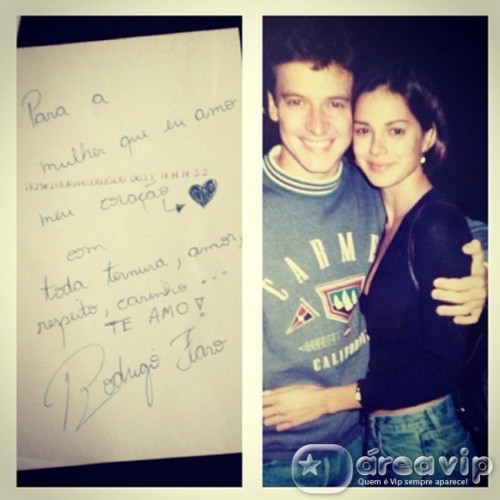 Para a
mulher que eu amo
meu coração
com
toda ternura, amor,
respeito, carinho...
TE AMO!
Rodrigo Faro
CARMEL
CALIFORNIA
áreavip
Quem é Vip sempre aparece!